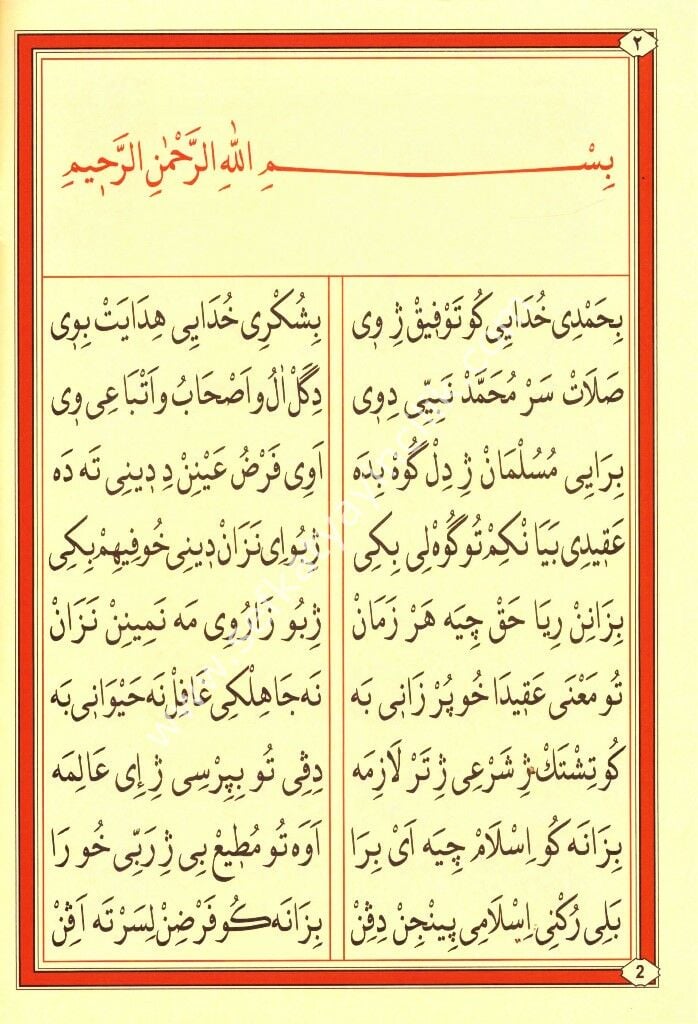 ٢
بِسْمِ اللّٰهِ الرَّحْمٰنِ الرَّحِيمِ
بِحَمْدِى خُدَايِى كُو تَوْفِيقْ ژِ وِى بِشُكْرِى خُدَايِى هِدَايَتْ بِوِى
صَلَاتْ سَرْ مُحَمَّدْ نَبِيِّى دِوِى دِگَلْ اٰلُ و اَصْحَابُ و اَتْبَاعِى وِى
بِرَايِى مُسُلْمَانْ ژِ دِلْ گُوهْ بِدَه اَوِى فَرْضُ عَيْنِنْ دِ دِينِى تَه دَه
عَقِيدِى بَيَا نْكِمْ تُو گُوهْ لِى بِكِى ژِبُو اِى نَزَانْ دِينِى خُو فِيهِمْ بِكِى
بِزَانِنْ رِيَا حَقْ چِيَه هَرْ زَمَانْ ژِبُو زَارُوِى مَه نَمِينِنْ نَزَانْ
تُو مَعْنَى عَقِيدَا خُو پُرْ زَانِى بَه نَه جَاهِلْكِى غَافِلْ نَه حَيْوَانِى بَه
كُو تِشْتَكْ ژِ شَرْعِى ژِ تَرْ لَازِمَه دِڤِى تُو بِپِرْسِى ژِ اِى عَالِمَه
بِزَانَه كُو اِسْلَامْ چِيَه اَىْ بِرَا اَوَه تُو مُطِيعْ بِى ژِ رَبِّى خُو رَا
بَلِى رُكْنِى اِسْلَامِى پِينْجِنْ دِڤِنْ بِزَانَه كُو فَرْضِنْ لِسَرْ تَه اَڤِنْ
2